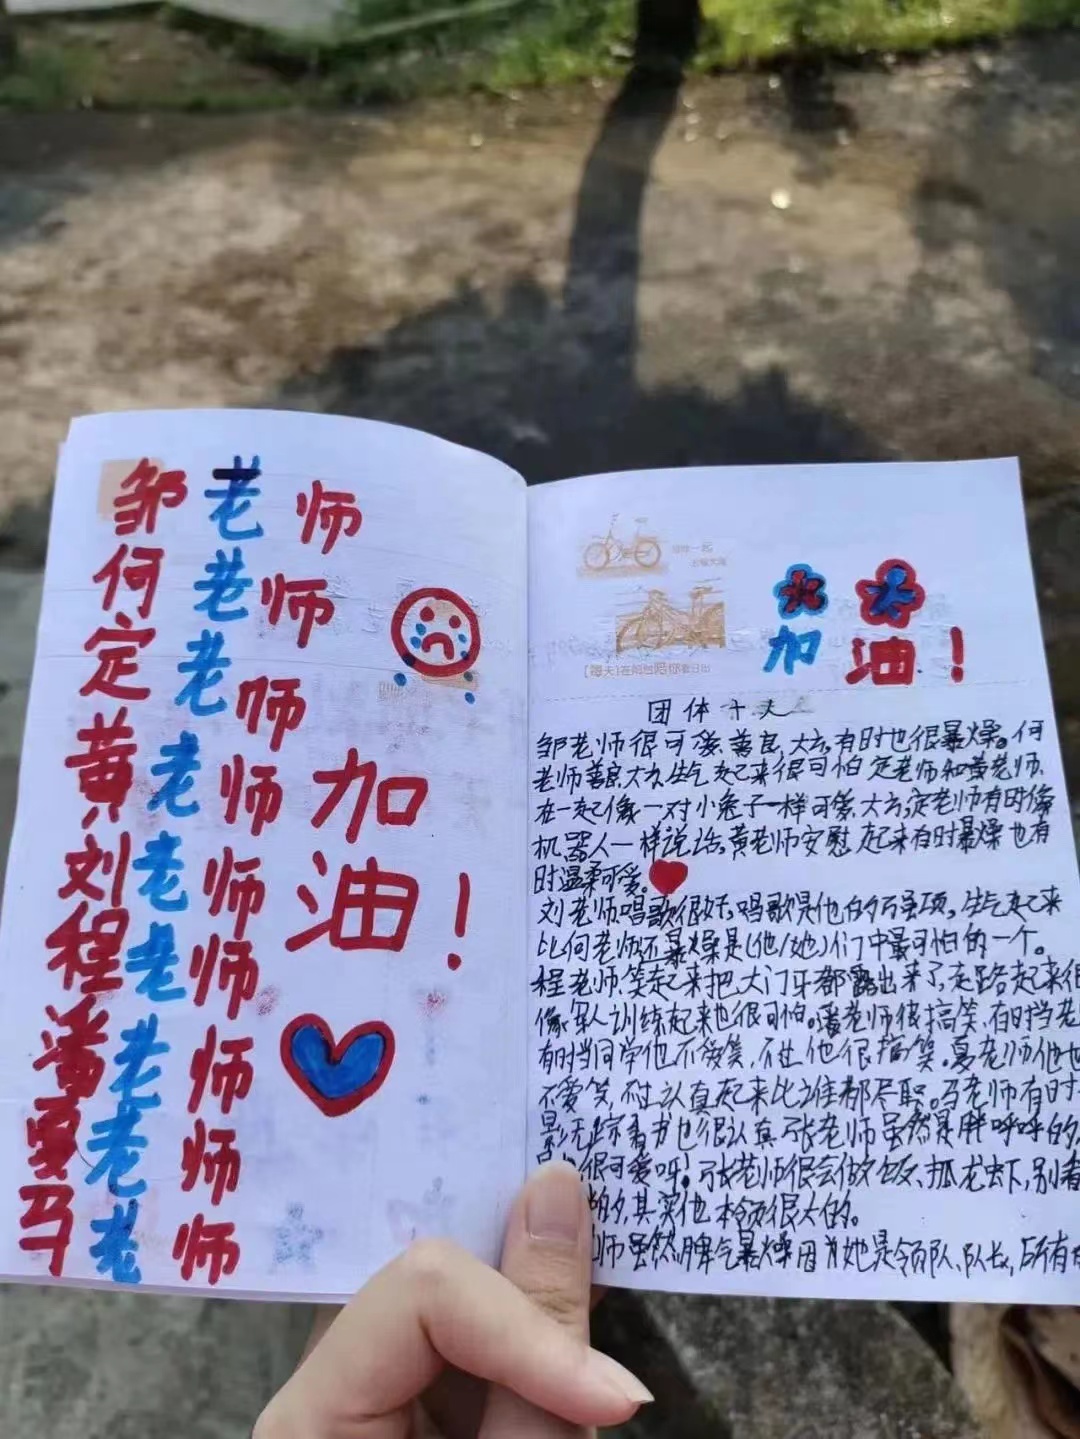 邹老师
何老师
定老师
黄老师
刘老师
程老师
潘老师
夏老师
马老师
加
油！
加油！
团体
邹老师很可爱、善良、大方，有时也很暴燥。何
老师善良、大方、生气起来很可怕 定老师和黄老师、
在一起像一对小兔子一样可爱、大方，定老师有时像
机器人一样说话，黄老师安慰起来有时暴燥也有
时温柔可爱。
刘老师唱歌很好，唱歌是他的万强项，生气起来
比何老师还暴燥是(他/她)们中最可怕的一个。
程老师、笑起来把、大门牙都露出来了，走路起来很
像军人训练起来也很可怕。潘老师很搞笑，有时当老
有时当同学他不爱笑，不过他很搞笑。夏老师他也
不爱笑，不过认真起来比谁都尽职。马老师有时
影无踪看书也很认真 张老师虽然是胖呼呼的，
很可爱呀！张老师很会做饭、抓龙虾，别看
的，其实他本领很大的。
师虽然脾气暴燥因为她是领队、队长，所有